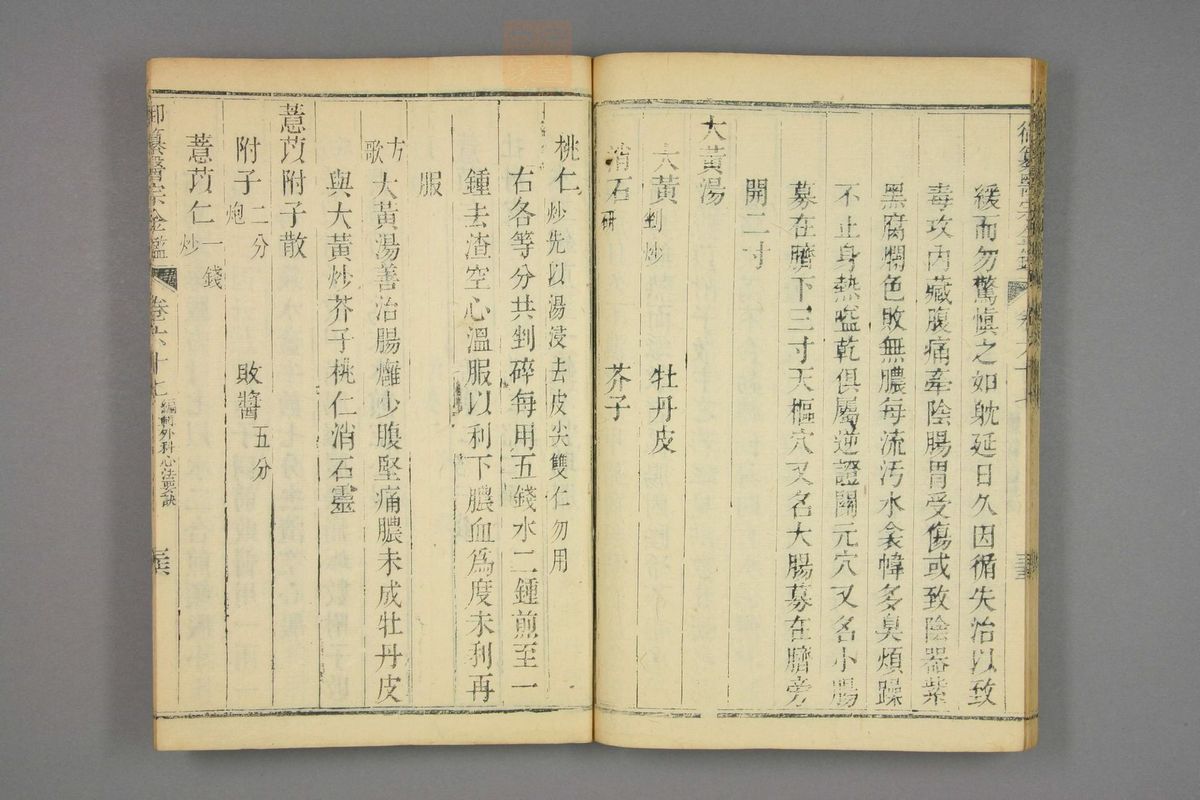 緩而勿驚愼之如躭延日久因循失治以致
毒攻內藏腹痛牽陰腸胃受傷或致陰器紫
黑腐爛色敗無膿每流汚水衾幃多臭煩躁
不止身熱嗌乾俱屬逆證關元穴又名小腸
募在臍下三寸天樞穴又名大腸募在臍旁
開二寸
大黃湯
大黃剉炒 牡丹皮
消石研 芥子
桃仁炒先以湯浸去皮尖雙仁勿用
右各等分共剉碎每用五錢水二鍾煎至一
鍾去渣空心溫服以利下膿血爲度未利再
服
方歌 大黃湯善治腸癰少腹堅痛膿未成牡丹皮
與大黃炒芥子桃仁消石靈
薏苡附子散
附子二分炮 敗醬五分
薏苡仁一錢炒
御纂醫宗金鑑 卷六十七 編輯外科心法要訣